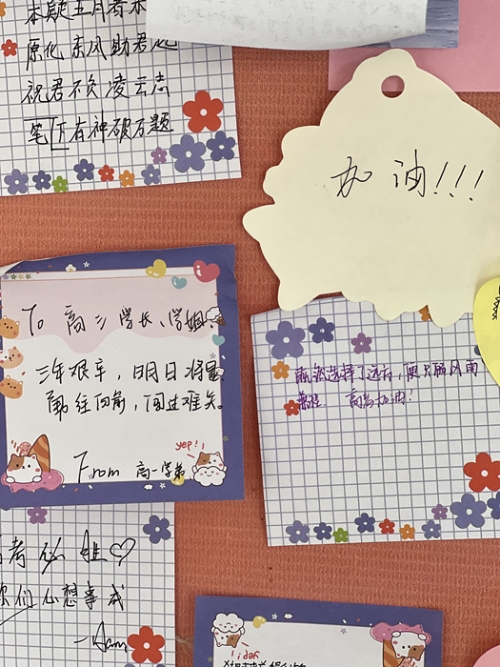 本疑五月春
原化东风助君起
祝君不负凌云志
笔下有神破万题
加油!!!
To 高三学长、学姐:
三年艰辛,明日将至
第径向前,闯过难关。
From 高一学弟
yep!
既然选择了远方,便只顾风雨
兼程. 高考加油!
考必胜♡
你们心想事成
-Aam